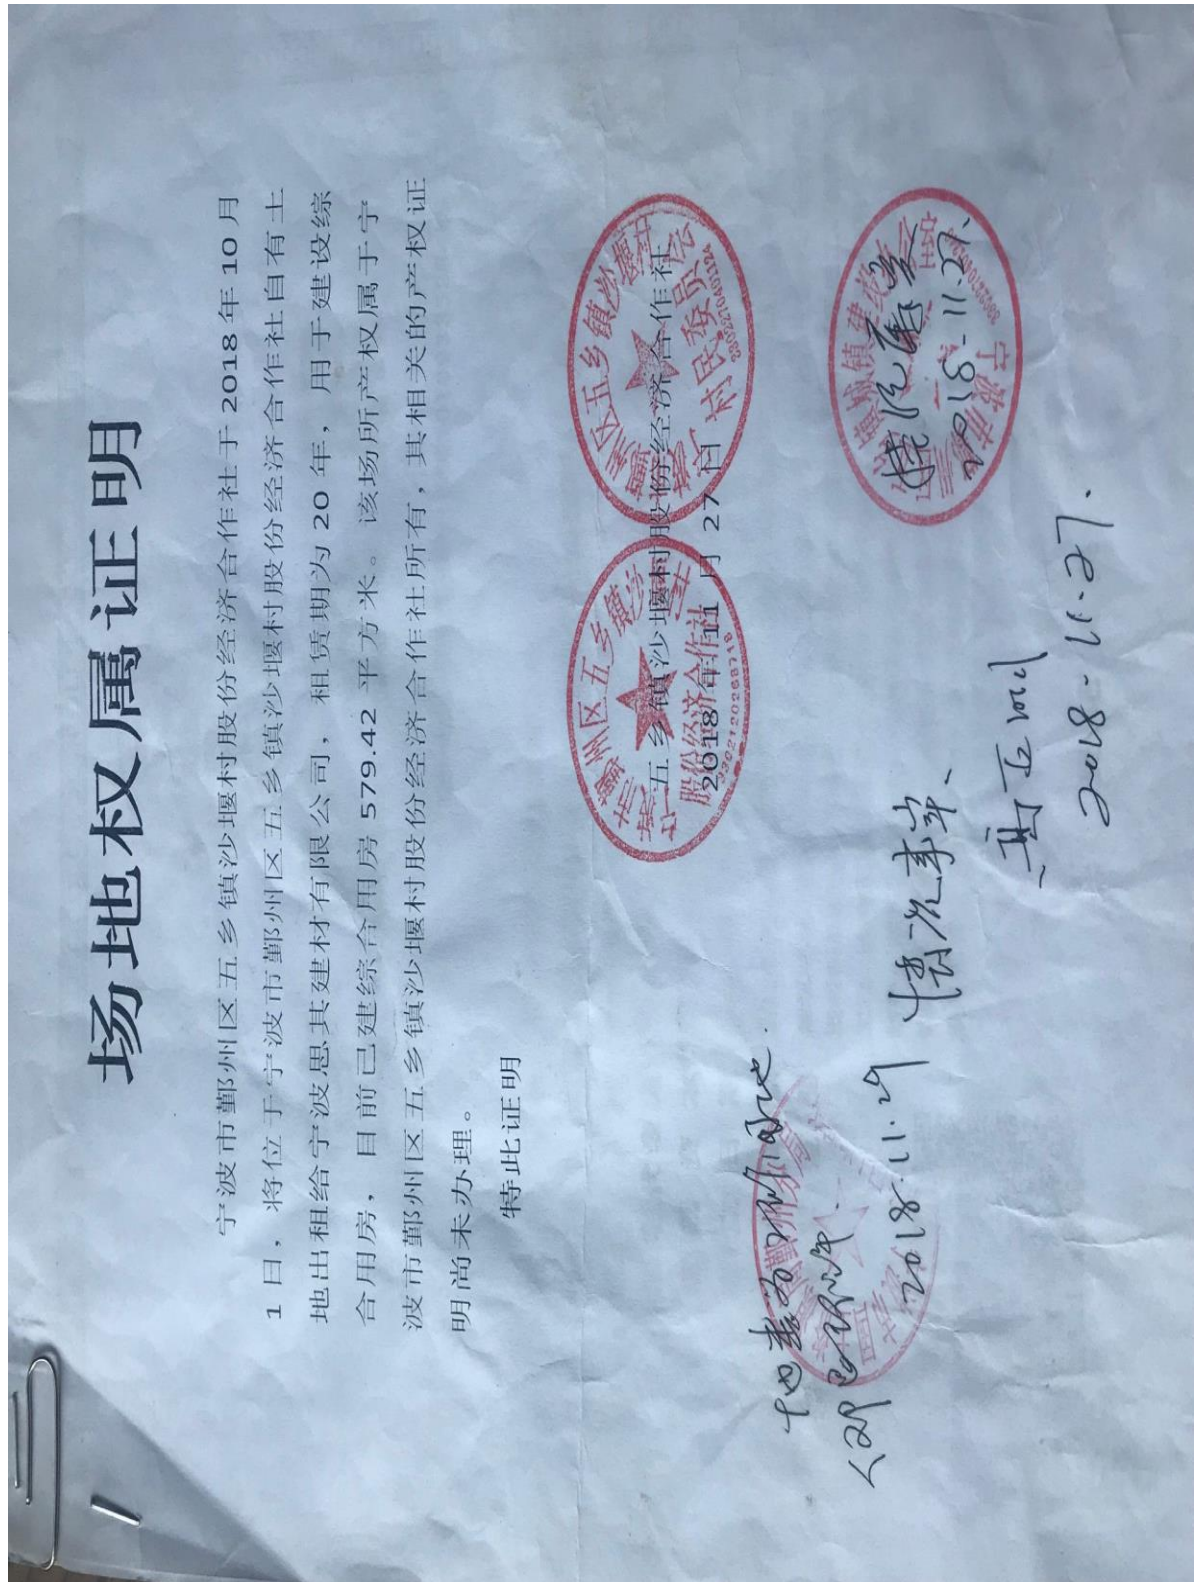 场地权属证明
宁波市鄞州区五乡镇沙堰村股份经济合作社于 2018 年 10 月
1 日，将位于宁波市鄞州区五乡镇沙堰村股份经济合作社自有土
地出租给宁波思其建材有限公司，租赁期为 20 年，用于建设综
合用房，目前已建综合用房 579.42 平方米。该场所产权属于宁
波市鄞州区五乡镇沙堰村股份经济合作社所有，其相关的产权证
明尚未办理。
特此证明
鄞州区五乡镇沙堰
股份经济合作社
3302120268718
区五乡镇沙堰村
村民委员会
五乡镇沙堰村股份经济合作社
2018 年 11 月 27 日
情况属实
2018.11.27.
2018.11.29
情况事实、
2018-11-27.